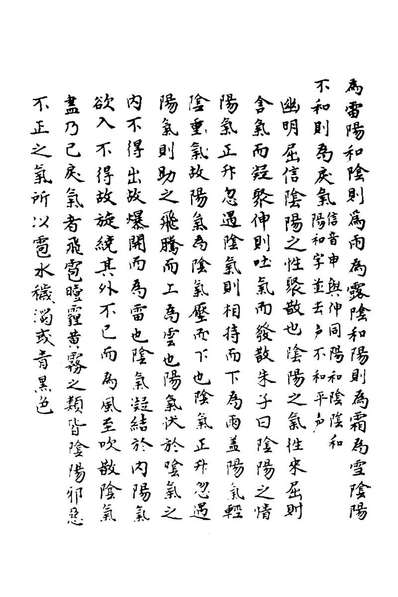 為雷陽和陰則為雨為露陰和陽則為霜為雪陰陽
不和則為戾氣信音申與伸同陽和陰陰和
陽和字並去聲不和平聲
幽明屈信陰陽之性聚散也陰陽之氣性來屈則
含氣而凝聚伸則吐氣而發散朱子曰陰陽之情
陽氣正升忽遇陰氣則相持而下為雨蓋陽氣輕
陰重氣故陽氣為陰氣壓而下也陰氣正升忽遇
陽氣則助之飛騰而上為雲也陽氣伏於陰氣之
內不得出故爆開而為雷也陰氣凝結於內陽氣
欲入不得故旋繞其外不已而為風至吹散陰氣
盡乃已戾氣者飛雹曀霾黃霧之類皆陰陽邪惡
不正之氣所以雹水穢濁或青黑色